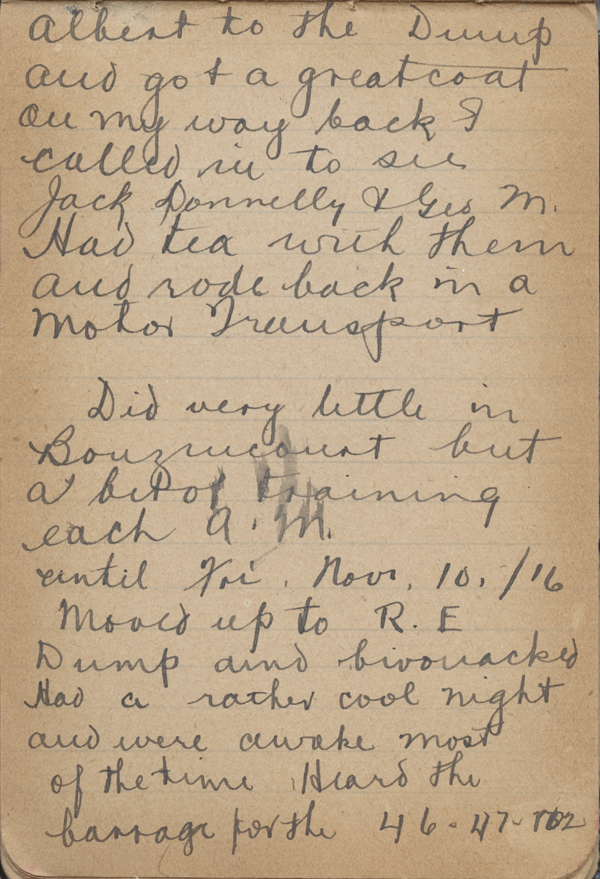 Albert to the Dump
and got a greatcoat
On my way back I
called in to see
Jack Donnelly & Geo M.
Had tea with them
and rode back in a
Motor Transport
Did very little in
Bouzincourt but
a bit of training
each A.M.
until Fri. Nov. 10./16
Moved up to R.E
Dump and bivouacked
Had a rather cool night
and were awake most
of the time Heard the
barrage for the 46-47-